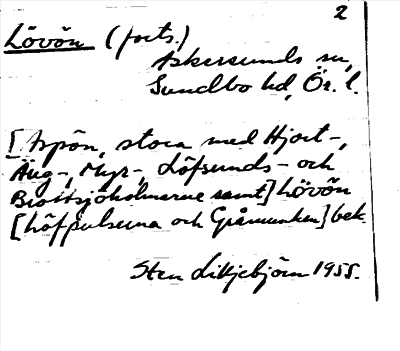 2
Lövön (forts.)
Askersunds sn,
Sundbo hd, Ör. l.
[Aspön, stora med Hjort-,
Äng-, Myr-, Löfsunds- och
Brottsjöholmarne samt] Lövön
[Löfpulserna och Gråmunken] bek.
Sten Liljebjörn 1955.